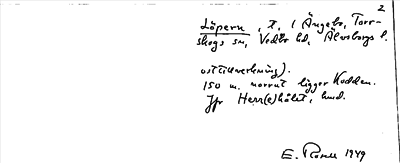 2
Löpern, t. (Ängebo, Torr-
skogs sn, Vedbo hd, Älvsborgs l.
osttillverkning).
150 m. norrut ligger Kodden.
Jfr Herr(e)hålet, hmd.
E. Rosell 1949